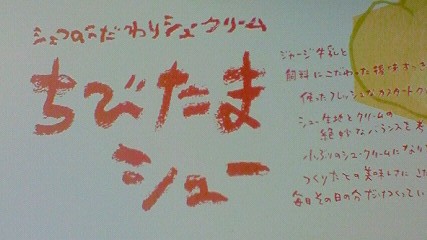 シェフのこだわりシュークリーム
ちびたま
シュー
ジャージー牛乳と
飼料にこだわった
使ったフレッシュなカスタード
シュー生地とクリームの
絶妙なバランスを考
小ぶりのシュークリームになり
つくりたての美味しさに
毎日その日の分だけつくってい